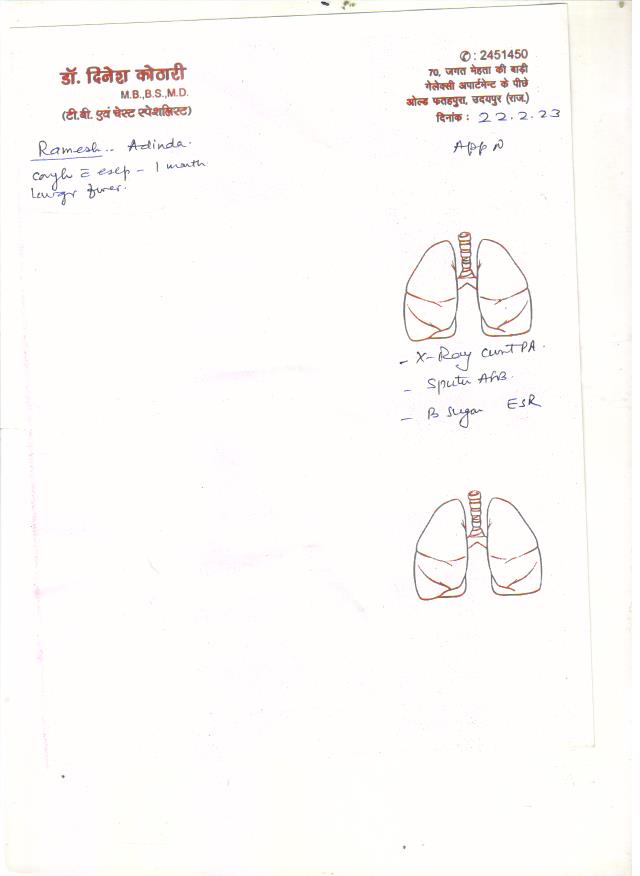 डॉ. दिनेश कोठारी
M.B.,B.S.,M.D.
(टी.बी. एवं चेस्ट स्पेशलिस्ट)
✆ : 2451450
70, जगत मेहता की बाड़ी
गेलेक्सी अपार्टमेन्ट के पीछे
ओल्ड फतहपुरा, उदयपुर (राज.)
दिनांक : 22.2.23
Ramesh.. Adinda.
cough - 1 month
App
- X-Ray PA.
- Sputu AFB.
- B Sugar ESR